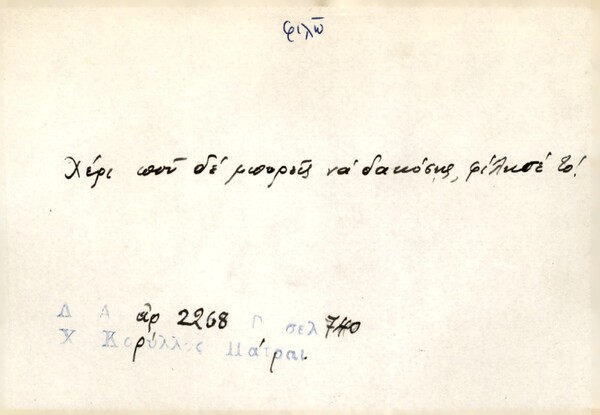 φιλῶ
Χέρι ποῦ δέ μπορεῖς νά δακώσῃς, φίλησέ το!
Λ Α ἀρ 2268 Γ σελ 740
Χ Κορύλλος Πάτραι